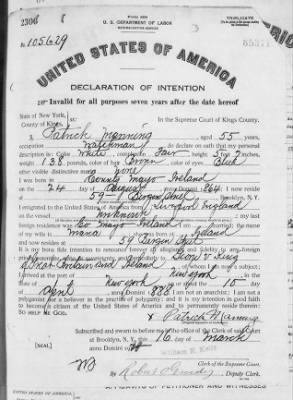 2300
U. S. DEPARTMENT OF LABOR
No. 105629
UNITED STATES OF AMERICA
DECLARATION OF INTENTION
Invalid for all purposes seven years after the date hereof
State of New York,
County of Kings,
In the Supreme Court of Kings County.
I, Patrick Manning, aged 55 years,
occupation Watchman, do declare on oath that my personal
description is: Color White, complexion Fair, height 5 feet inches,
weight 138 pounds, color of hair Brown, color of eyes Blue
other visible distinctive marks none
I was born in County Mayo Ireland
on the 24 day of , anno Domini 1864; I now reside
at 59 Bergen Street, Brooklyn, N. Y.
I emigrated to the United States of America from Liverpool England
on the vessel unknown
foreign residence was Co Mayo Ireland
of my wife is Maria; Ireland
and now resides at 59 Bergen Street
It is my bona fide intention to renounce forever all allegiance and fidelity to any foreign
George V King
of Great Britain and Ireland, of whom I am now a subject;
I arrived at the port of New York, in the
State of New York, on or about the 15 day
of April, anno Domini 1888; I am not an anarchist; I am not a
polygamist nor a believer in the practice of polygamy; and it is my intention in good faith
to become a citizen of the United States of America and to permanently reside therein:
SO HELP ME GOD.
x Patrick Manning
Subscribed and sworn to before me in the office of the Clerk of said Court
at Brooklyn, N. Y., this 16 day of March
anno Domini
[SEAL]
William E. Kelly
Clerk of the Supreme Court.
Deputy Clerk.
UNITED STATES OF AMERICA
AFFIDAVITS OF PETITIONER AND WITNESSES